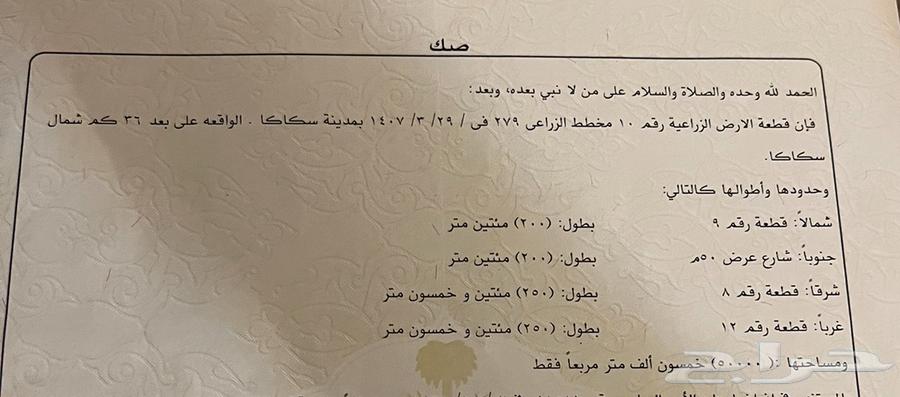 صك
الحمد لله وحده والصلاة والسلام على من لا نبي بعده، وبعد:
فإن قطعة الارض الزراعية رقم ١٠ مخطط الزراعى ٢٧٩ فى / ٢٩/ ٣/ ١٤٠٧ بمدينة سكاكا . الواقعه على بعد ٣٦ كم شمال
سكاكا.
وحدودها وأطوالها كالتالي:
شمالاً: قطعة رقم ٩ بطول: (٢٠٠) مئتين متر
جنوباً: شارع عرض ٥٠م بطول: (٢٠٠) مئتين متر
شرقاً: قطعة رقم ٨ بطول: (٢٥٠) مئتين و خمسون متر
غرباً: قطعة رقم ١٢ بطول: (٢٥٠) مئتين و خمسون متر
ومساحتها :( ٥٠,٠٠٠) خمسون ألف متر مربعاً فقط
حراج